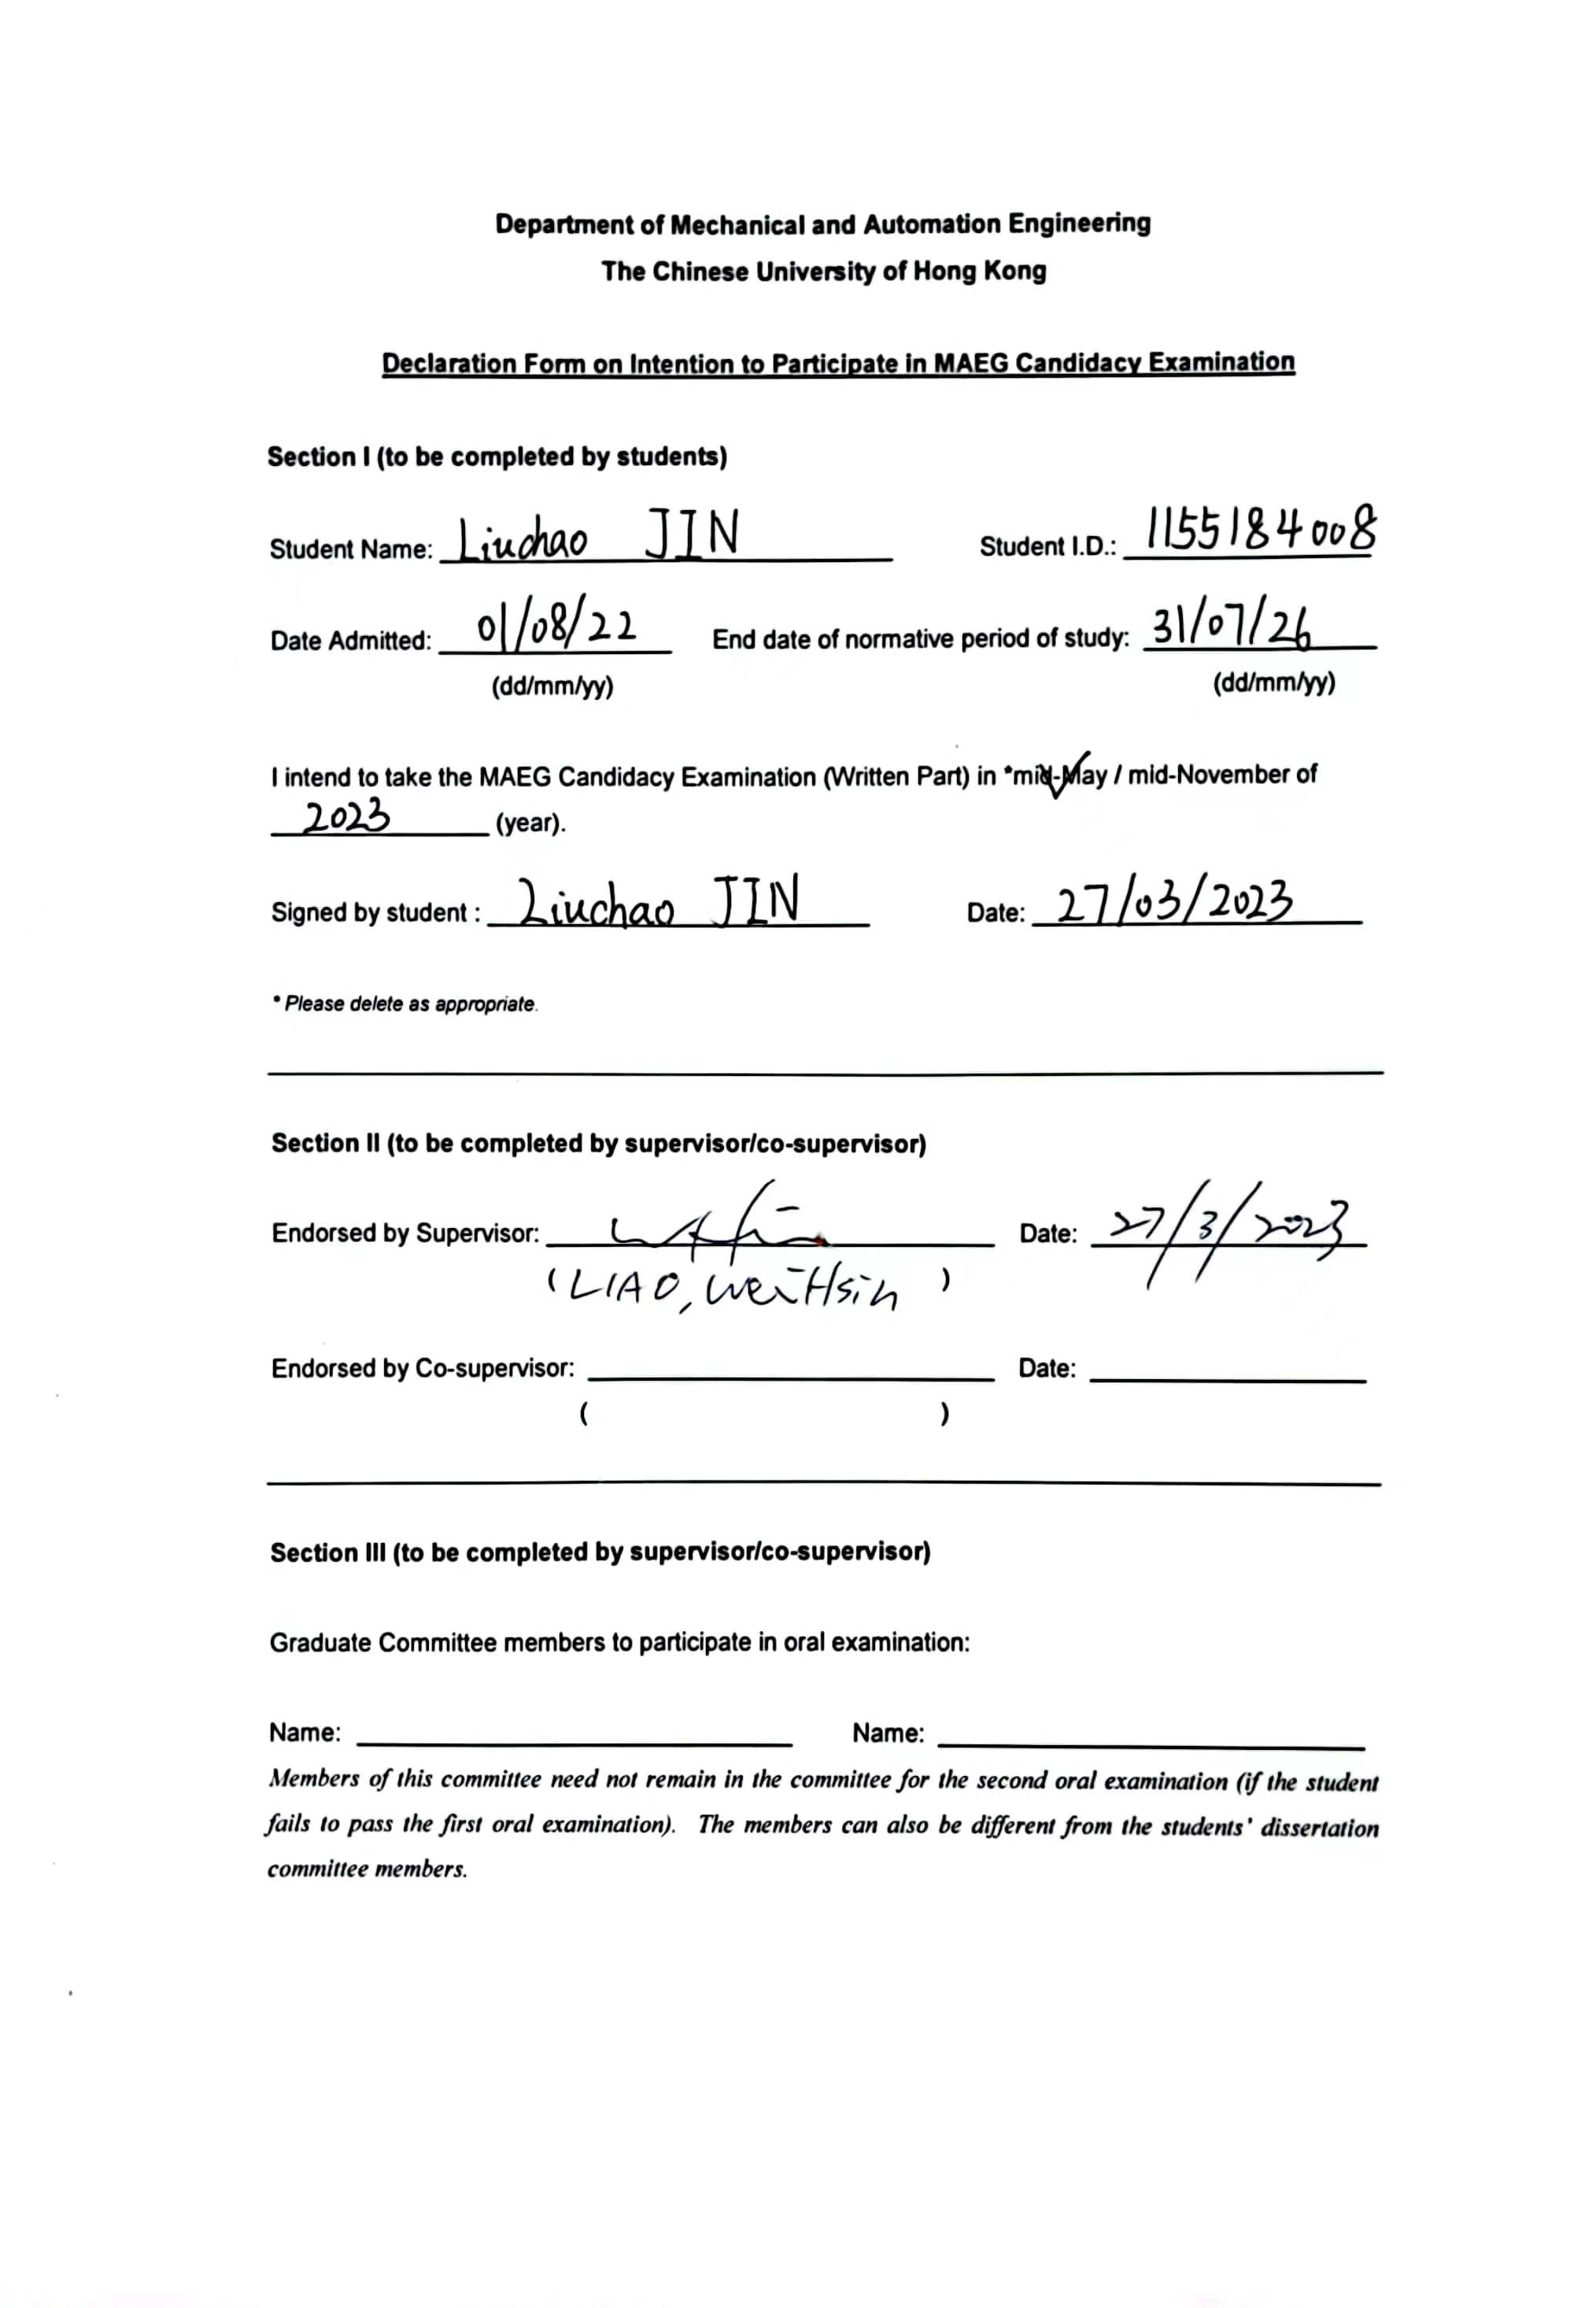 Department of Mechanical and Automation Engineering
The Chinese University of Hong Kong
Declaration Form on Intention to Participate in MAEG Candidacy Examination
Section I (to be completed by students)
Student Name: Liuchao JIN Student I.D.: 1155184008
Date Admitted: 01/08/22 End date of normative period of study: 31/07/26
(dd/mm/yy) (dd/mm/yy)
I intend to take the MAEG Candidacy Examination (Written Part) in *mid-May / mid-November of
2023 (year).
Signed by student : Liuchao JIN Date: 27/03/2023
* Please delete as appropriate.
Section II (to be completed by supervisor/co-supervisor)
Endorsed by Supervisor: Date: 27/3/2023
(LIAO, Wei-Hsin )
Endorsed by Co-supervisor: Date:
( )
Section III (to be completed by supervisor/co-supervisor)
Graduate Committee members to participate in oral examination:
Name: Name:
Members of this committee need not remain in the committee for the second oral examination (if the student
fails to pass the first oral examination). The members can also be different from the students' dissertation
committee members.